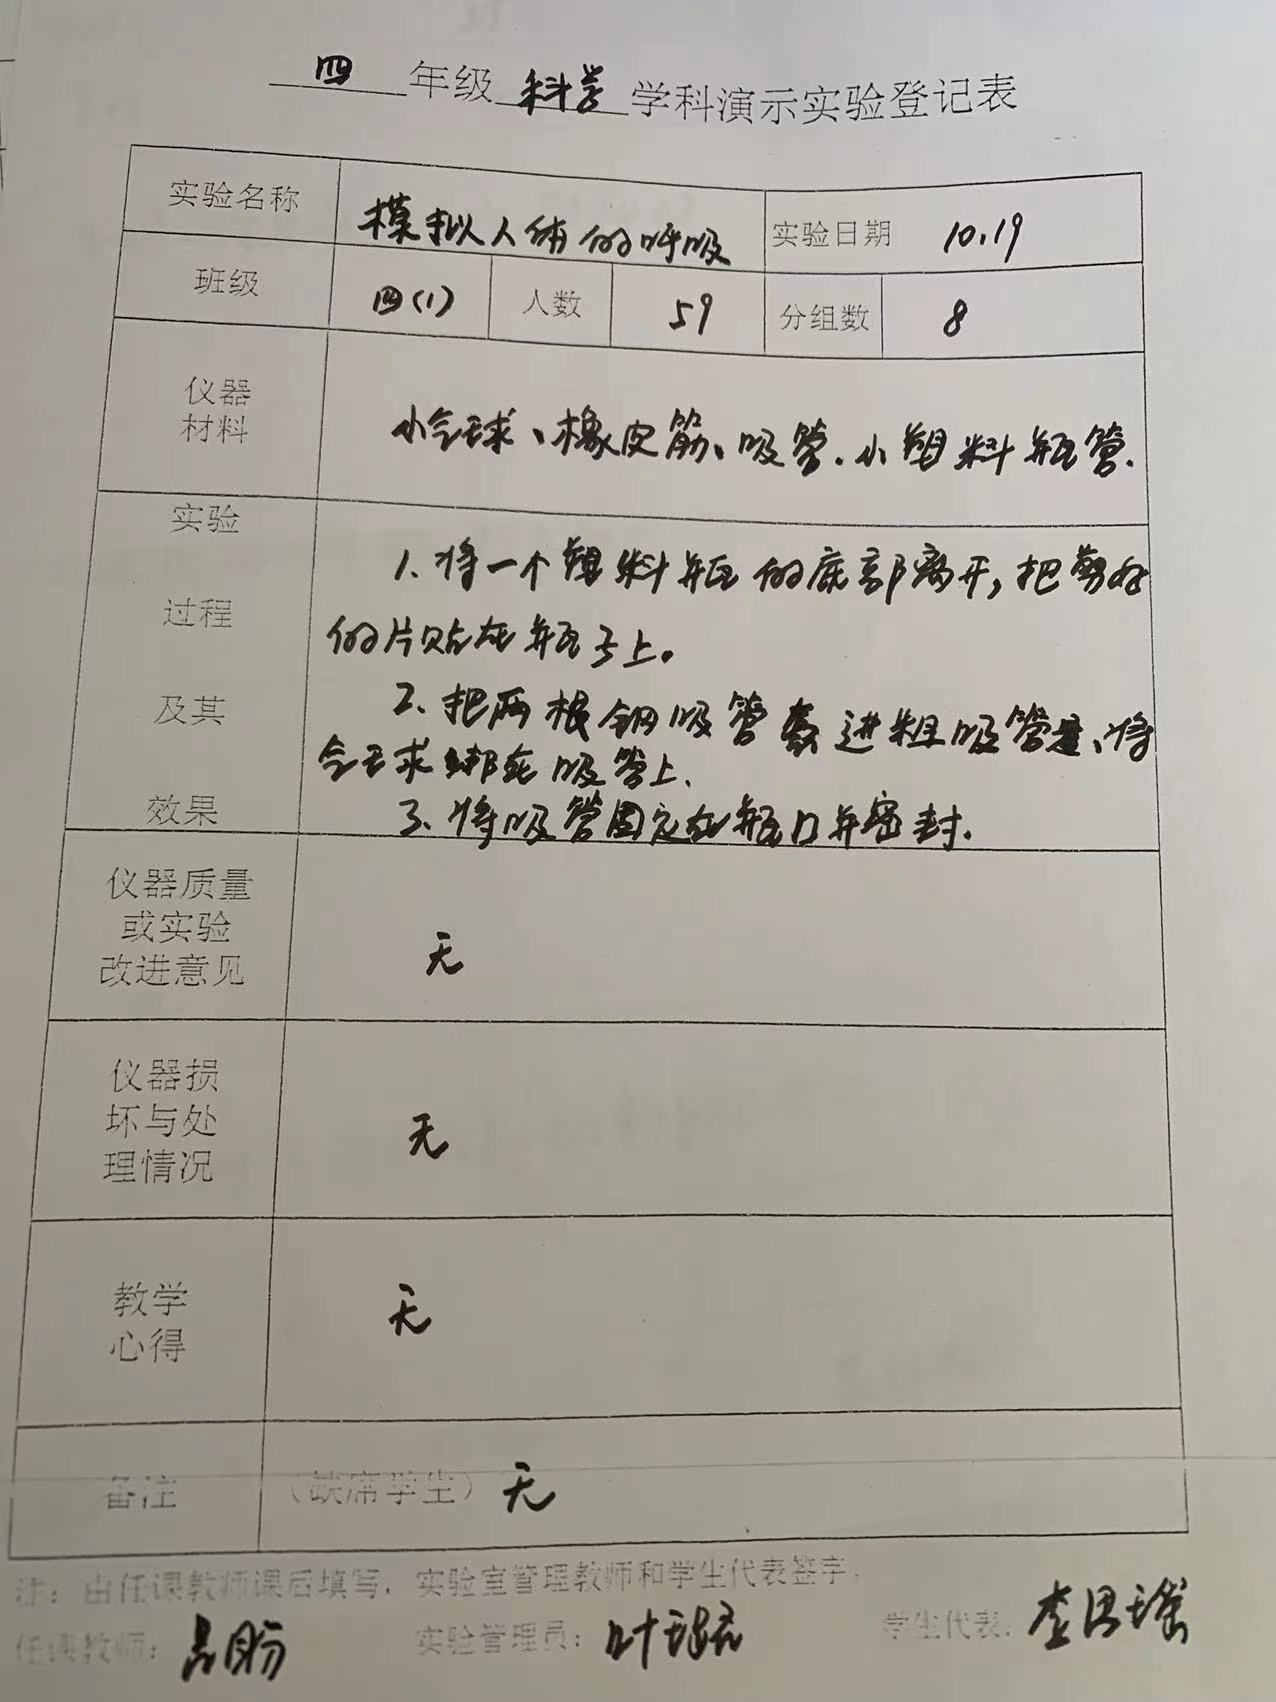 四 年级 科学 学科演示实验登记表
实验名称 模拟人体的呼吸 实验日期 10.19
班级 四(1) 人数 59 分组数 8
仪器
材料
小气球、橡皮筋、吸管.小塑料瓶管.
实验
过程
及其
效果
1.将一个塑料瓶的底部离开,把剪好
的片贴在瓶子上。
2.把两根细吸管套进粗吸管里、将
气球绑在吸管上.
3、将吸管固定在瓶口并密封.
仪器质量
或实验
改进意见
无
仪器损
坏与处
理情况
无
教学
心得
无
备注 (缺席学生) 无
注:由任课教师课后填写,实验室管理教师和学生代表签字。
任课教师: 实验管理员: 学生代表: